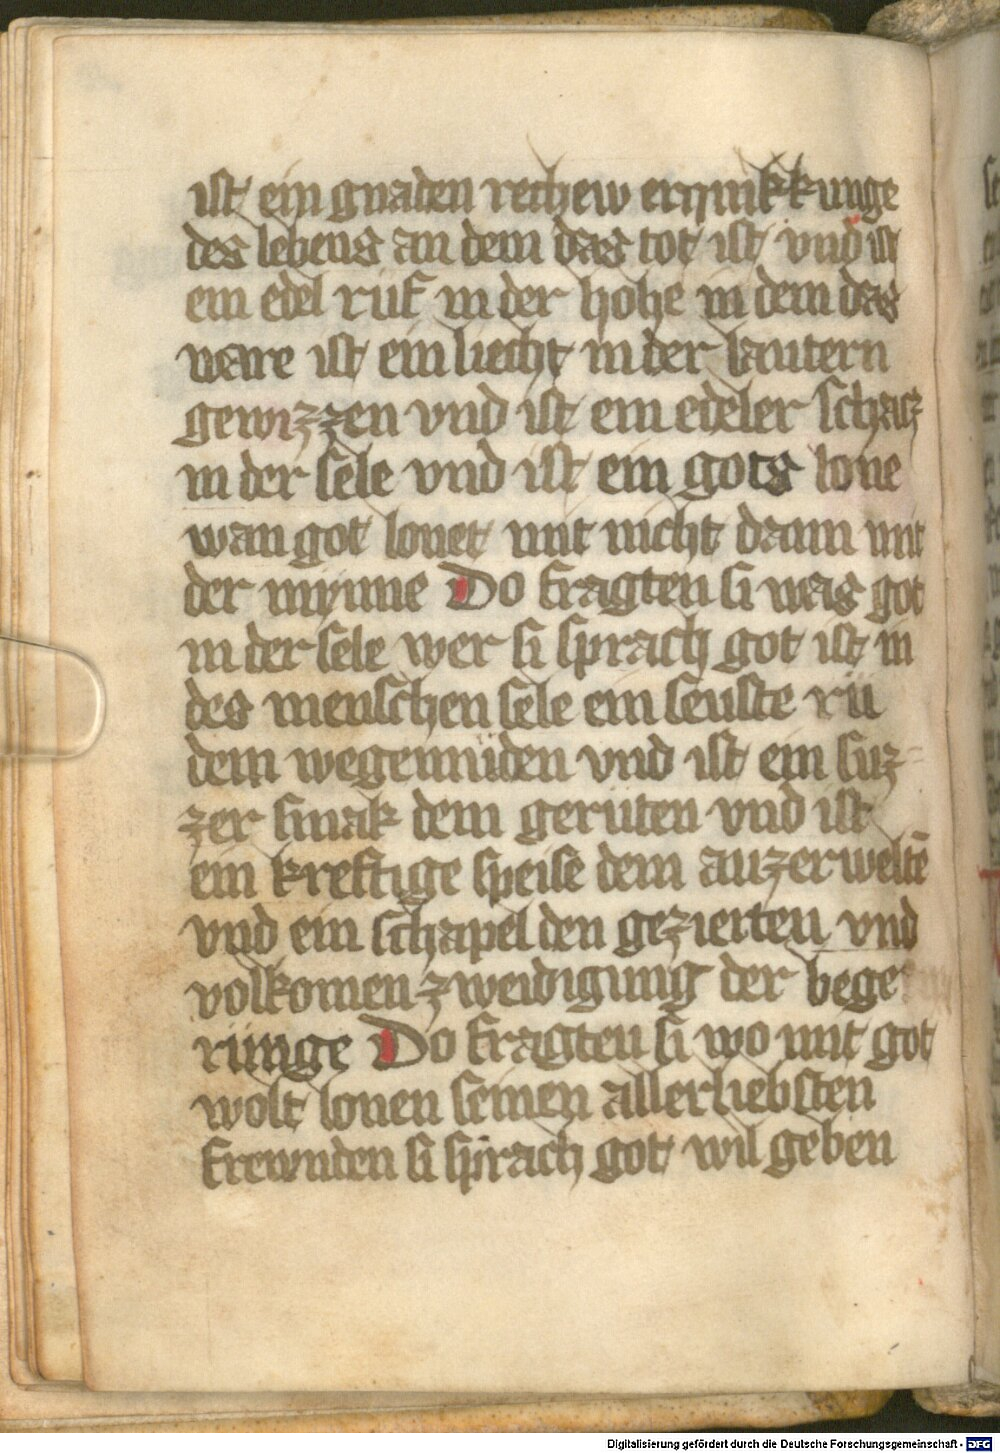 ist ein gnaden rechew erquikkunge
des lebens an dem das tot ist vnd ist
ein edel rüf in der hohe in dem das
ware ist ein liecht in der lautern
gewizzen vnd ist ein edeler schacz
in der sele vnd ist ein gots lone
wan got lonet mit nicht dann mit
der mynne Do fragten si was got
in der sele wer si sprach got ist in
des menschen sele ein senfte rü
dem wegemüden vnd ist ein süz-
zer smak dem gerüten vnd ist
ein kreftige speise dem auzerweltē
vnd ein schapel den gezierten vnd
volkomen zweidigung der bege
rünge Do fragten si wo mit got
wolt lonen seinen allerliebsten
frewnden si sprach got wil geben
Digitalisierung gefördert durch die Deutsche Forschungsgemeinschaft - DFG